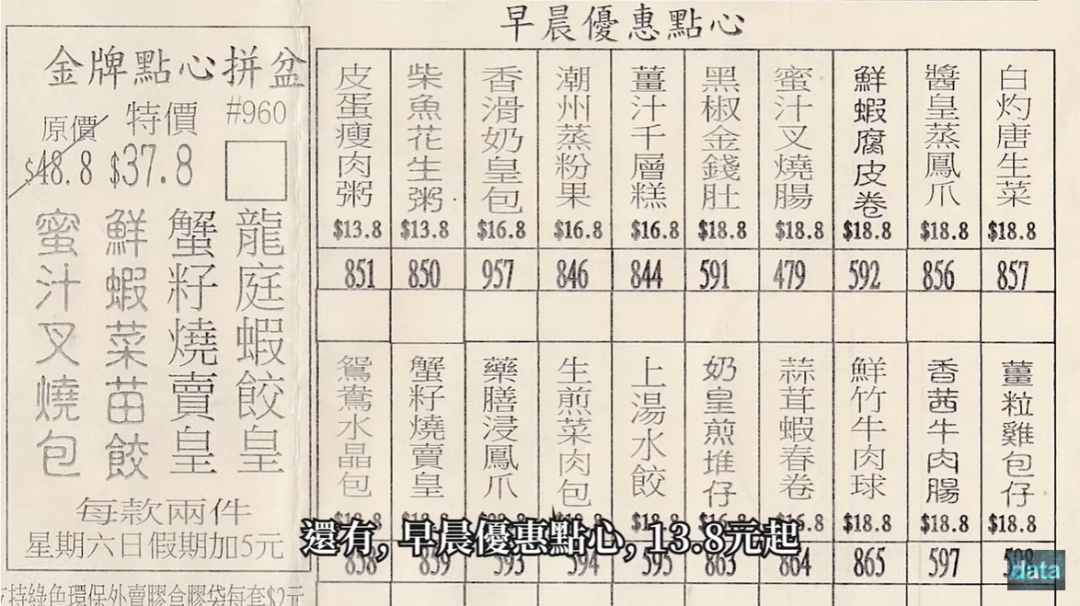 早晨優惠點心
金牌點心拼盆
原價 特價 #960
$48.8 $37.8
龍庭蝦餃皇
蟹籽燒賣皇
鮮蝦菜苗餃
蜜汁叉燒包
每款兩件
星期六日假期加5元
持綠色環保外賣膠盒膠袋每套$2元
白灼唐生菜 $18.8 857
醬皇蒸鳳爪 $18.8 856
鮮蝦腐皮卷 $18.8 592
蜜汁叉燒腸 $18.8 479
黑椒金錢肚 $18.8 591
薑汁千層糕 $16.8 844
潮州蒸粉果 $16.8 846
香滑奶皇包 $16.8 957
柴魚花生粥 $13.8 850
皮蛋瘦肉粥 $13.8 851
薑粒雞包仔 $18.8
香茜牛肉腸 $18.8 597
鮮竹牛肉球 $18.8 865
蒜茸蝦春卷 864
奶皇煎堆仔 863
上湯水餃 595
生煎菜肉包 594
藥膳浸鳳爪 593
蟹籽燒賣皇 859
鴛鴦水晶包 858
還有, 早晨優惠點心, 13.8元起
data